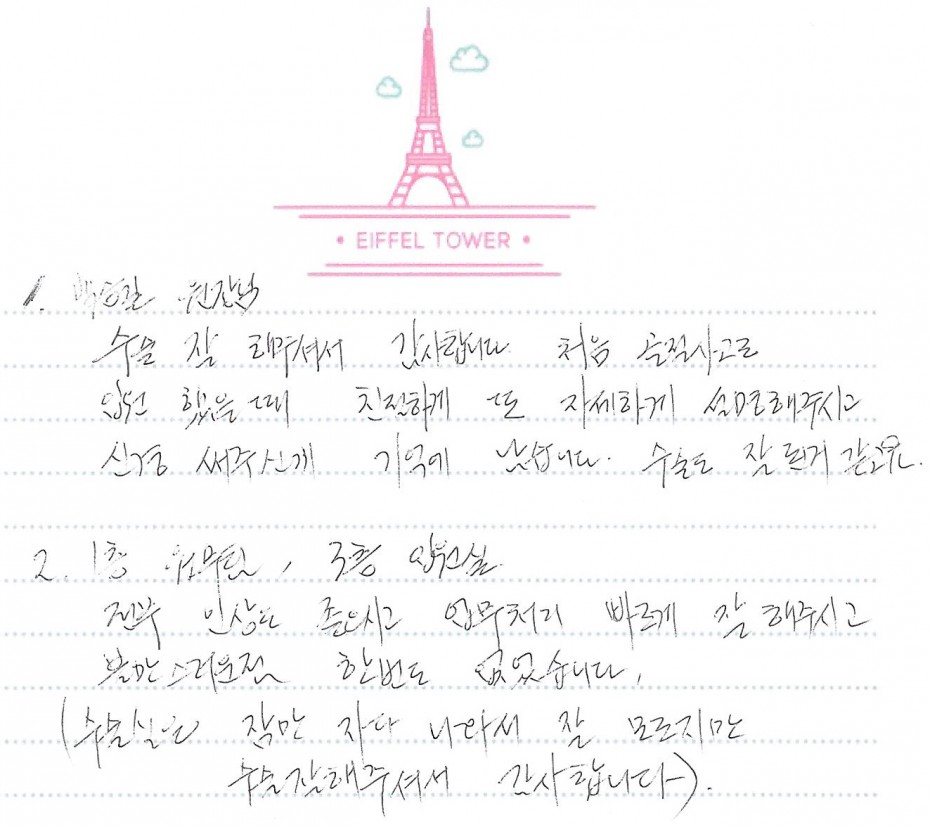 • EIFFEL TOWER •
1. 원장님
수술 잘 해주셔서 감사합니다. 처음 골절사고로
입원 했을때 친절하게 또 자세하게 설명해주시고
신경 써주신게 기억에 남습니다. 수술도 잘 된거 같고요.
2. 1층 원무팀, 3층 입원실
전부 인상도 좋으시고 업무처리 바르게 잘 해주시고
불만스러운점 한번도 없었습니다.
(수술실은 잠만 자다 나와서 잘 모르지만
수술잘해주셔서 감사합니다~).